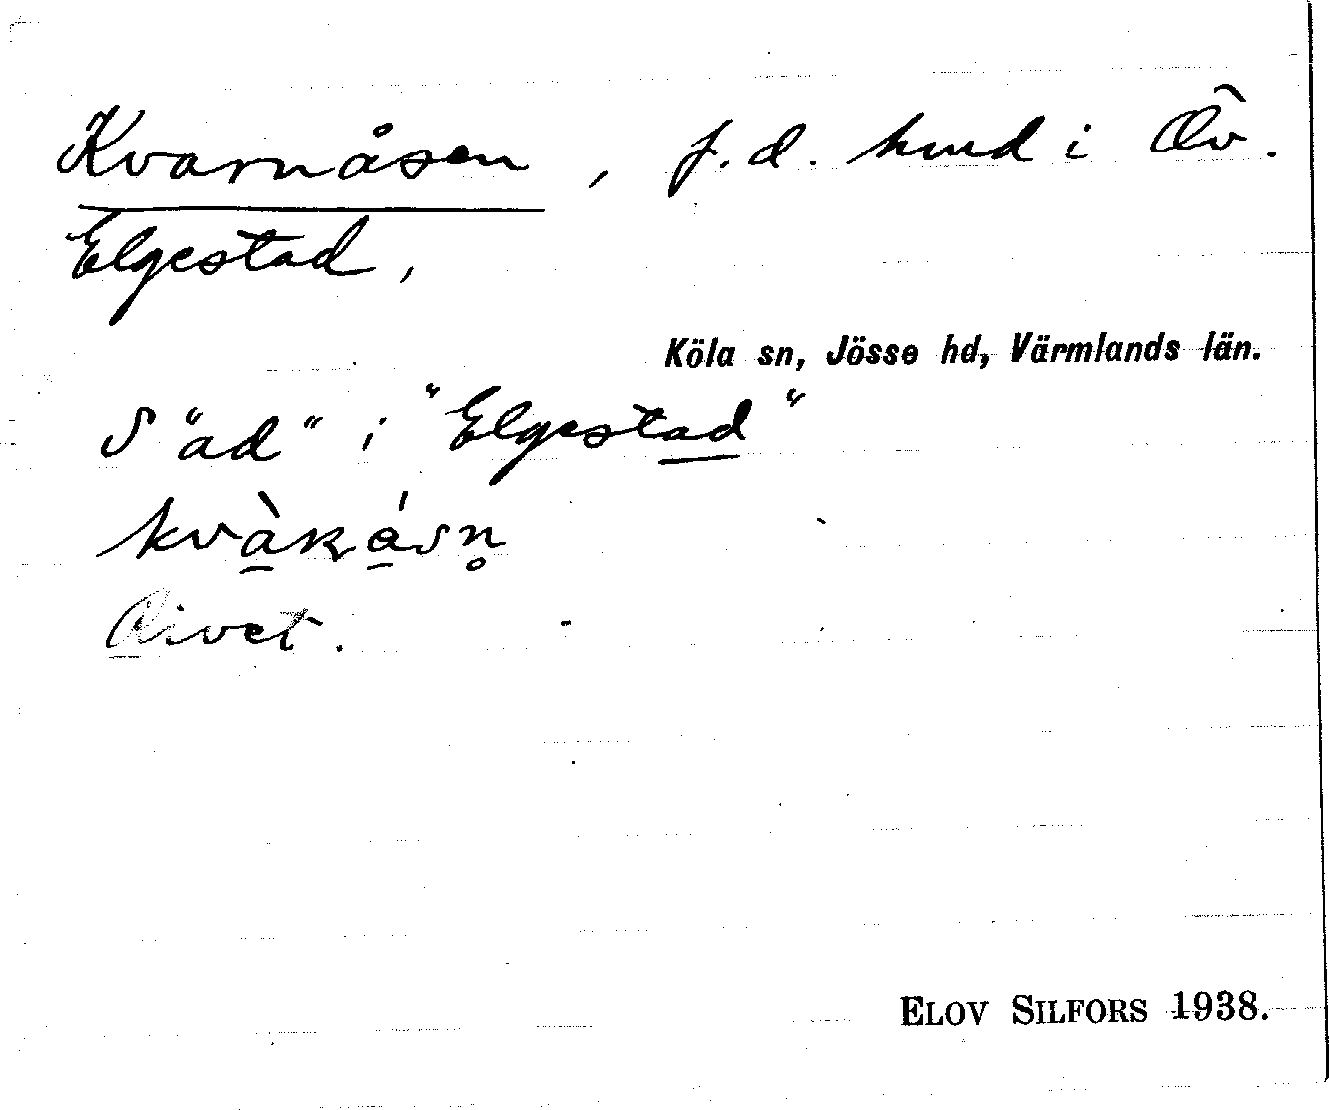 Kvarnåsen, f.d. hmd i Öv.
Elgestad,
Köla sn, Jösse hd, Värmlands län.
S "ad" i "Elgestad"
Livet.
ELOV SILFORS 1938.